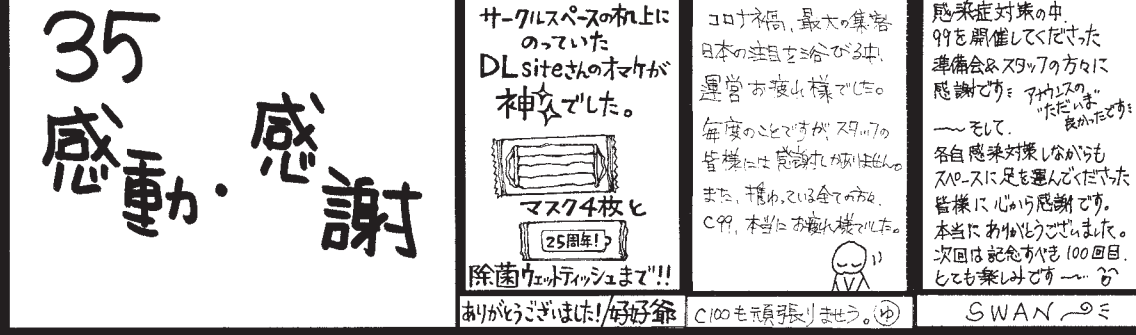 35
感動・感謝
サークルスペースの机上に
のっていた
DLsiteさんのオマケが
神でした。
マスク4枚と
25周年!
除菌ウェットティッシュまで!!
ありがとうございました!/好好爺
コロナ禍、最大の集客
日本の注目を浴びる中、
運営お疲れ様でした。
毎度のことですが、スタッフの
皆様には感謝しかありません。
また、携わっている全ての方々、
C99、本当にお疲れ様でした。
C100も頑張りませう。ゆ
感染症対策の中、
99を開催してくださった
準備会&スタッフの方々に
感謝です
アナウンスの
"ただいま"
良かったです
〜〜そして、
各自感染対策しながらも
スペースに足を運んでくださった
皆様に心から感謝です。
本当にありがとうございました。
次回は記念すべき100回目、
とても楽しみです〜〜
SWAN